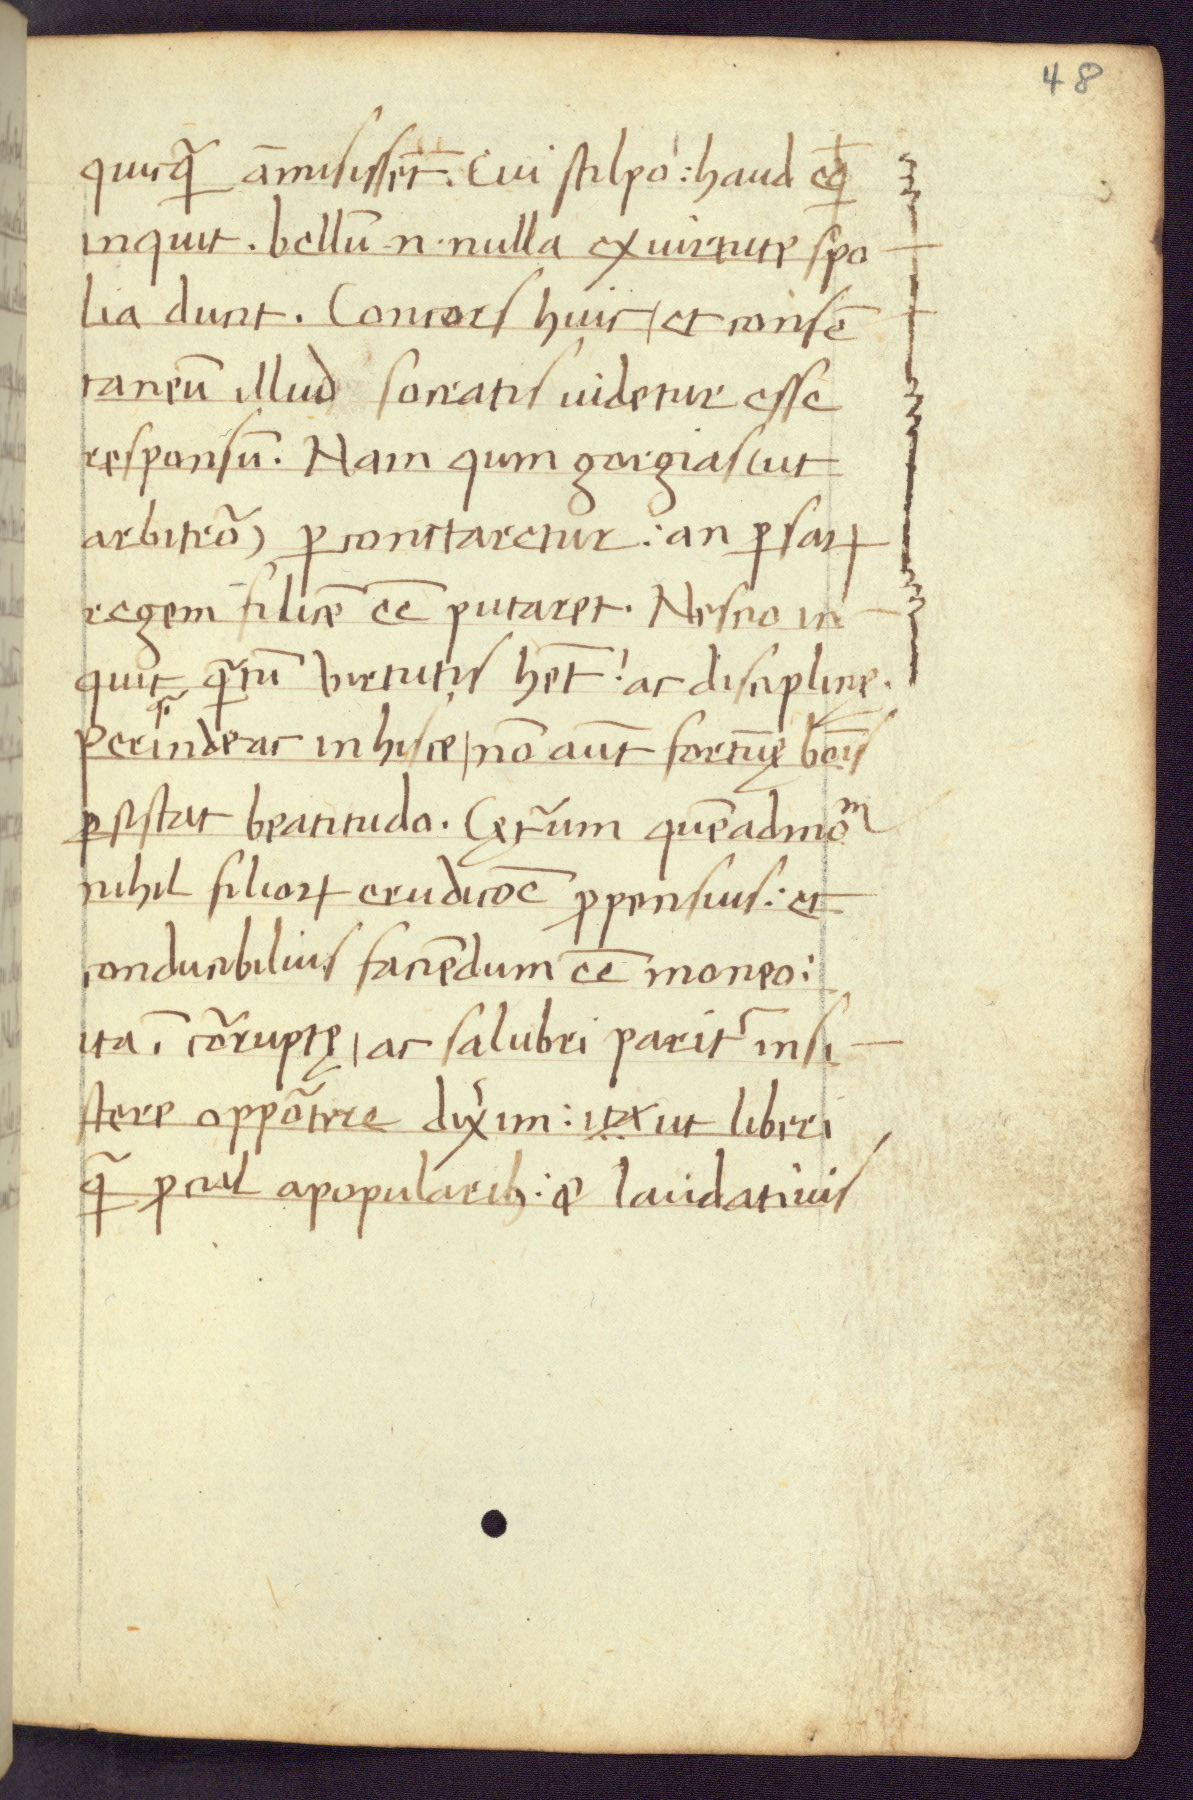 48
quicq̃ āmisissēt. Cui stilpo: haud eq̄
inquit. bellū .n. nulla ex uirtute spo
lia ducit. Concors huic / et consē
taneū illud socratis uidetur esse
responsū. Nam qum gorgias (ut
arbitrõ) ꝑconctaretur: an ꝑsaꝝ
regem filicē eē putaret. Nescio in
quit q̃tū virtutis hēt: ac discipline.
Perinde ac in hisce / nō aūt fortūę bōis
ꝑsistat beatitudo. Cęt̃um quēadmōm
nihil filioꝝ erudicōe ꝓpensius: et
conducibilius faciēdum eē moneo:
ita ĩcõruptę / ac salubri parit̃ insi
stere oppõtere dixim: ut liberi
q̃ ꝓcul a popularib: & laudatiuis